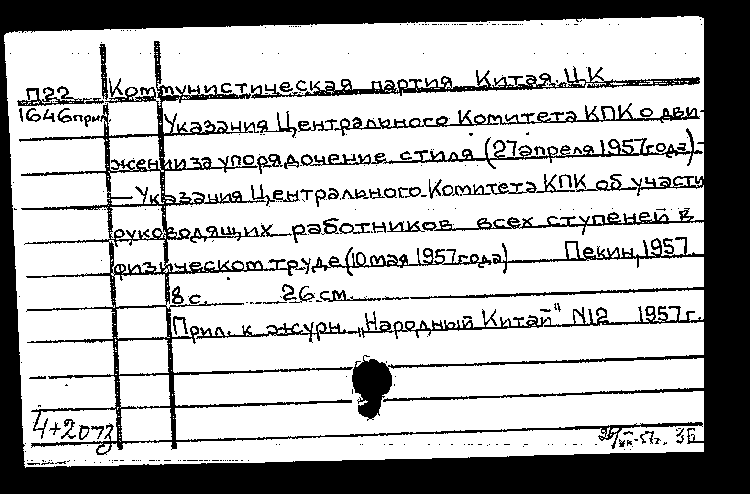 П22 Коммунистическая партия Китая. ЦК.
1646прил.
Указания Центрального Комитета КПК о дви-
жении за упорядочение стиля (27 апреля 1957 года).-
— Указания Центрального Комитета КПК об участи
руководящих работников всех ступеней в
физическом труде (10 мая 1957 года) Пекин, 1957.
8 с. 26 см.
Прил. к журн. „Народный Китай" N12 1957 г.
4+2073